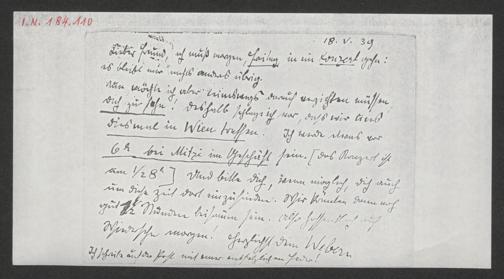 I.N. 184.110
18. V. 39
Lieber Freund, ich muß morgen, Freitag, in ein Konzert gehn:
es bleibt mir nichts andres übrig.
Nun möchte ich aber keineswegs darauf verzichten müssen
Dich zu sehn! Deshalb schlage ich vor, dass wir uns
diesmal in Wien treffen. Ich werde etwas vor
6h bei Mitzi im Geschäft sein. [das Konzert ist
am ½ 8h] Und bitte Dich, wenn möglich, Dich auch
um diese Zeit dort einzufinden. Wir könnten dann noch
gut Stunden beisammen sein. Also hoffentlich auf
Wiedersehn morgen! Herzlichst Dein Webern
Ich schreibe auf der Post mit einer entsetzlichen Feder!